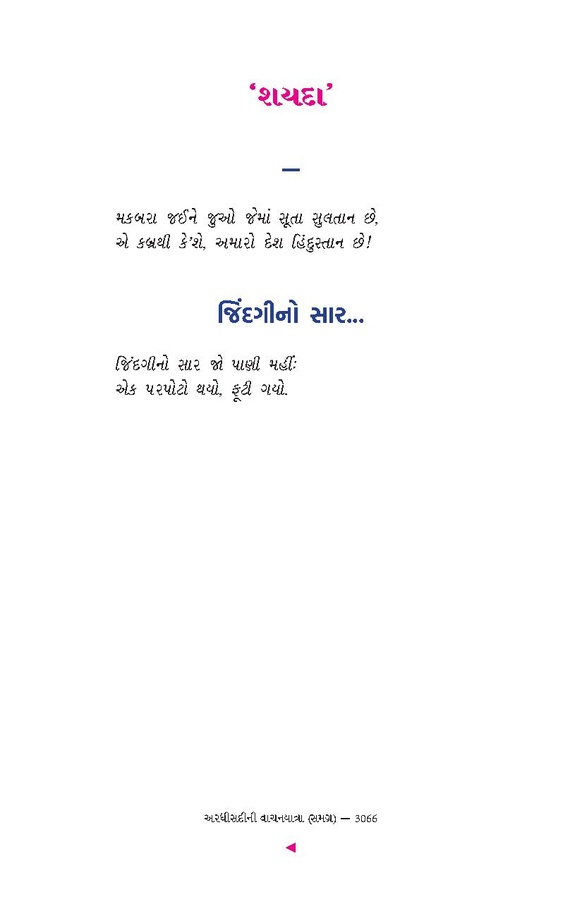 ‘શયદા’
—
મકબરા જઈને જુઓ જેમાં સૂતા સુલતાન છે,
એ કબ્રથી કે’શે, અમારો દેશ હિંદુસ્તાન છે!
જિંદગીનો સાર…
જિંદગીનો સાર જો પાણી મહીંઃ
એક પરપોટો થયો, ફૂટી ગયો.
અરધીસદીની વાચનયાત્રા (સમગ્ર) — 3066